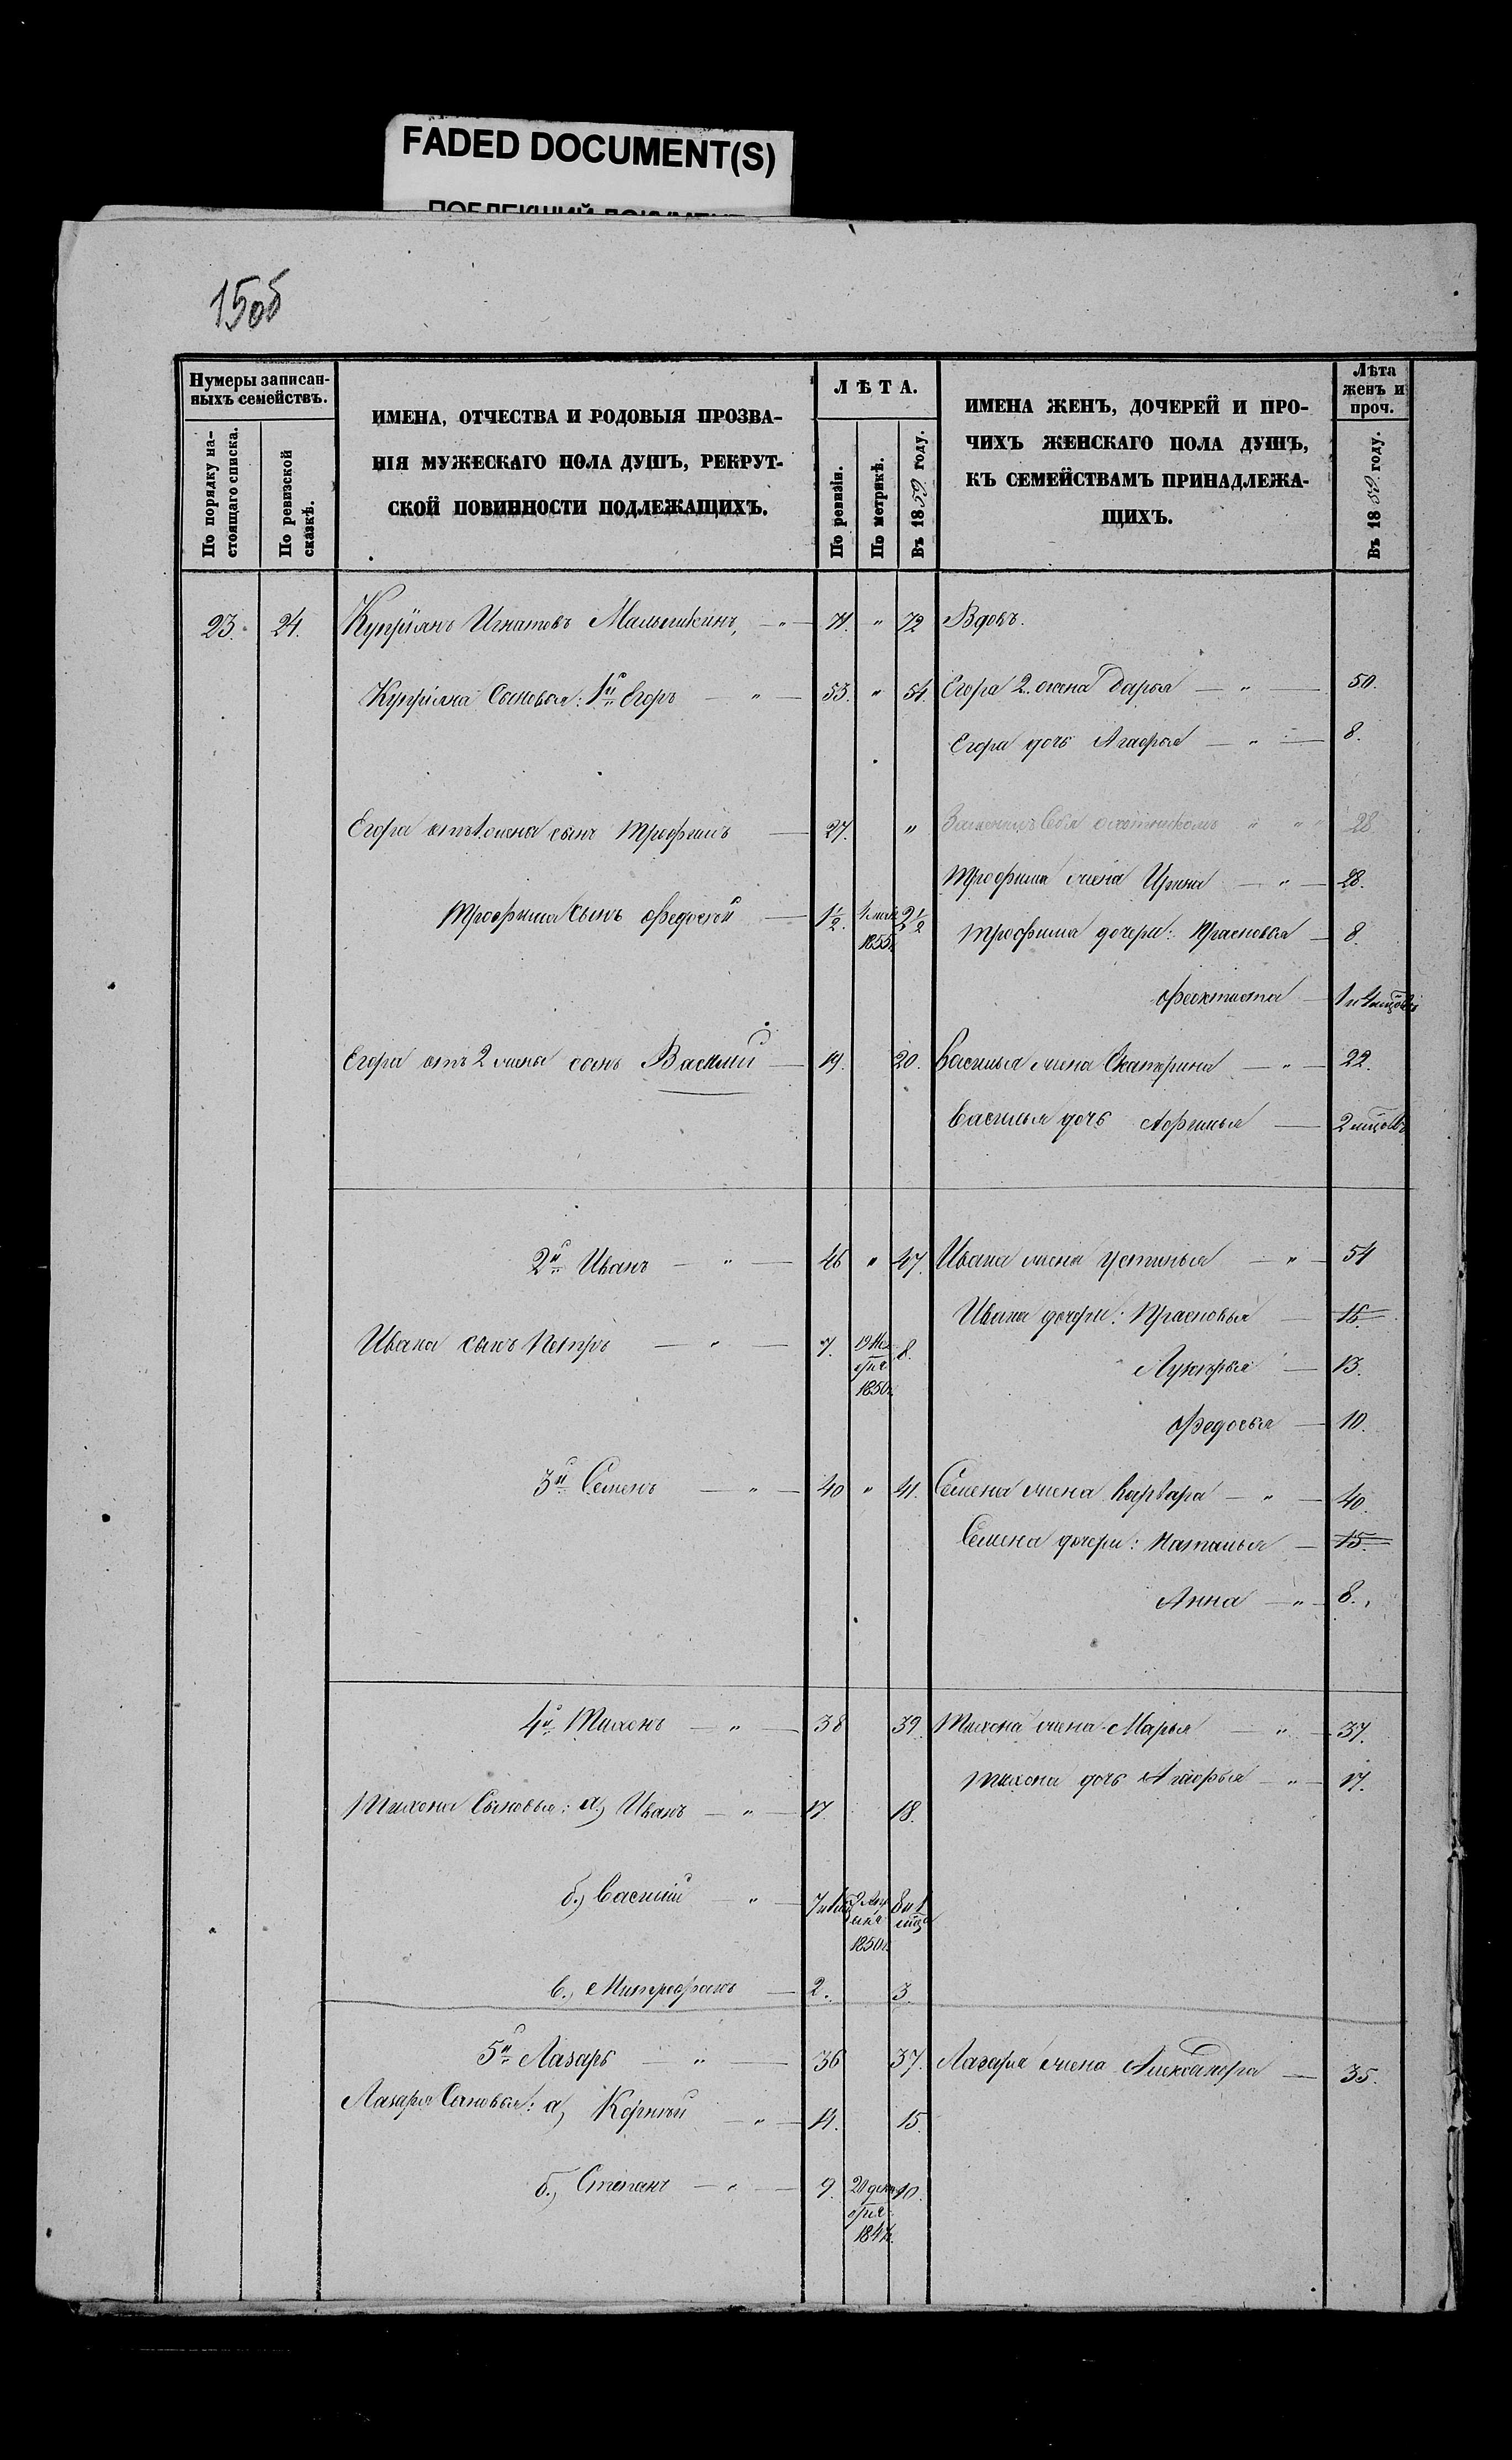 FADED DOCUMENT(S)
150б
Нумеры записан-
ныхъ семействъ.
По порядку на-
стоящаго списка.
По ревизской
сказкѣ.
ИМЕНА, ОТЧЕСТВА И РОДОВЫЯ ПРОЗВА-
НІЯ МУЖЕСКАГО ПОЛА ДУШЪ, РЕКРУТ-
СКОЙ ПОВИННОСТИ ПОДЛЕЖАЩИХЪ.
ЛѢТА.
По ревизіи.
По метрикѣ.
Въ 1859 году.
ИМЕНА ЖЕНЪ, ДОЧЕРЕЙ И ПРО-
ЧИХЪ ЖЕНСКАГО ПОЛА ДУШЪ,
КЪ СЕМЕЙСТВАМЪ ПРИНАДЛЕЖА-
ЩИХЪ.
Лѣта
женъ и
проч.
Въ 1859 году.
23. 24. Купріянъ Игнатовъ Малышкинъ, — " — 71. " 72 Вдовъ.
Купріяна Сыновья: 1й Егоръ — " — 53. " 54. Егора 2. жена Дарья — " — 50.
Егора дочь Агафья — " — 8.
Егора отъ 1. жена сынъ Трофимъ — 27. " Себя охотникомъ " " " 28
Трофима жена Ирина — " — 28.
Трофима Сынъ Федосей — 1½. 1855. 2½ Трофима дочери: Прасковья — 8.
Феактиста — 1 и 4 мцовъ
Егора отъ 2 жены сынъ Василій — 19. 20. Василья жена Екатерина — " — 22.
Василья дочь Афимья — 2 мцовъ
2й Иванъ — " — 46 " 47. Ивана жена Устинья — " — 54
Ивана дочери: Прасковья — 16.
Ивана сынъ Петръ — " — 7. 19 Но-
ября
1850г. 8.
Лукерья — 13.
Федосья — 10.
3й Семенъ — " — 40 " 41. Семена жена Варвара — " — 40.
Семена дочери: Наталья — 15.
Анна — " — 8.
4й Тихонъ — " — 38 39. Тихона жена Марья — " — 37.
Тихона дочь Агафья — " — 17.
Тихона Сыновья: а, Иванъ — " — 17. 18.
б., Василій — " — 1850г. 8 и 1 мца
в., Митрофанъ — 2. 3.
5й Лазарь — " — 36 37. Лазаря жена Александра — 35.
Лазаря Сыновья: а, Корнѣй — " — 14. 15.
б., Степанъ — " — 9. 20 дека-
бря
1848г. 10.